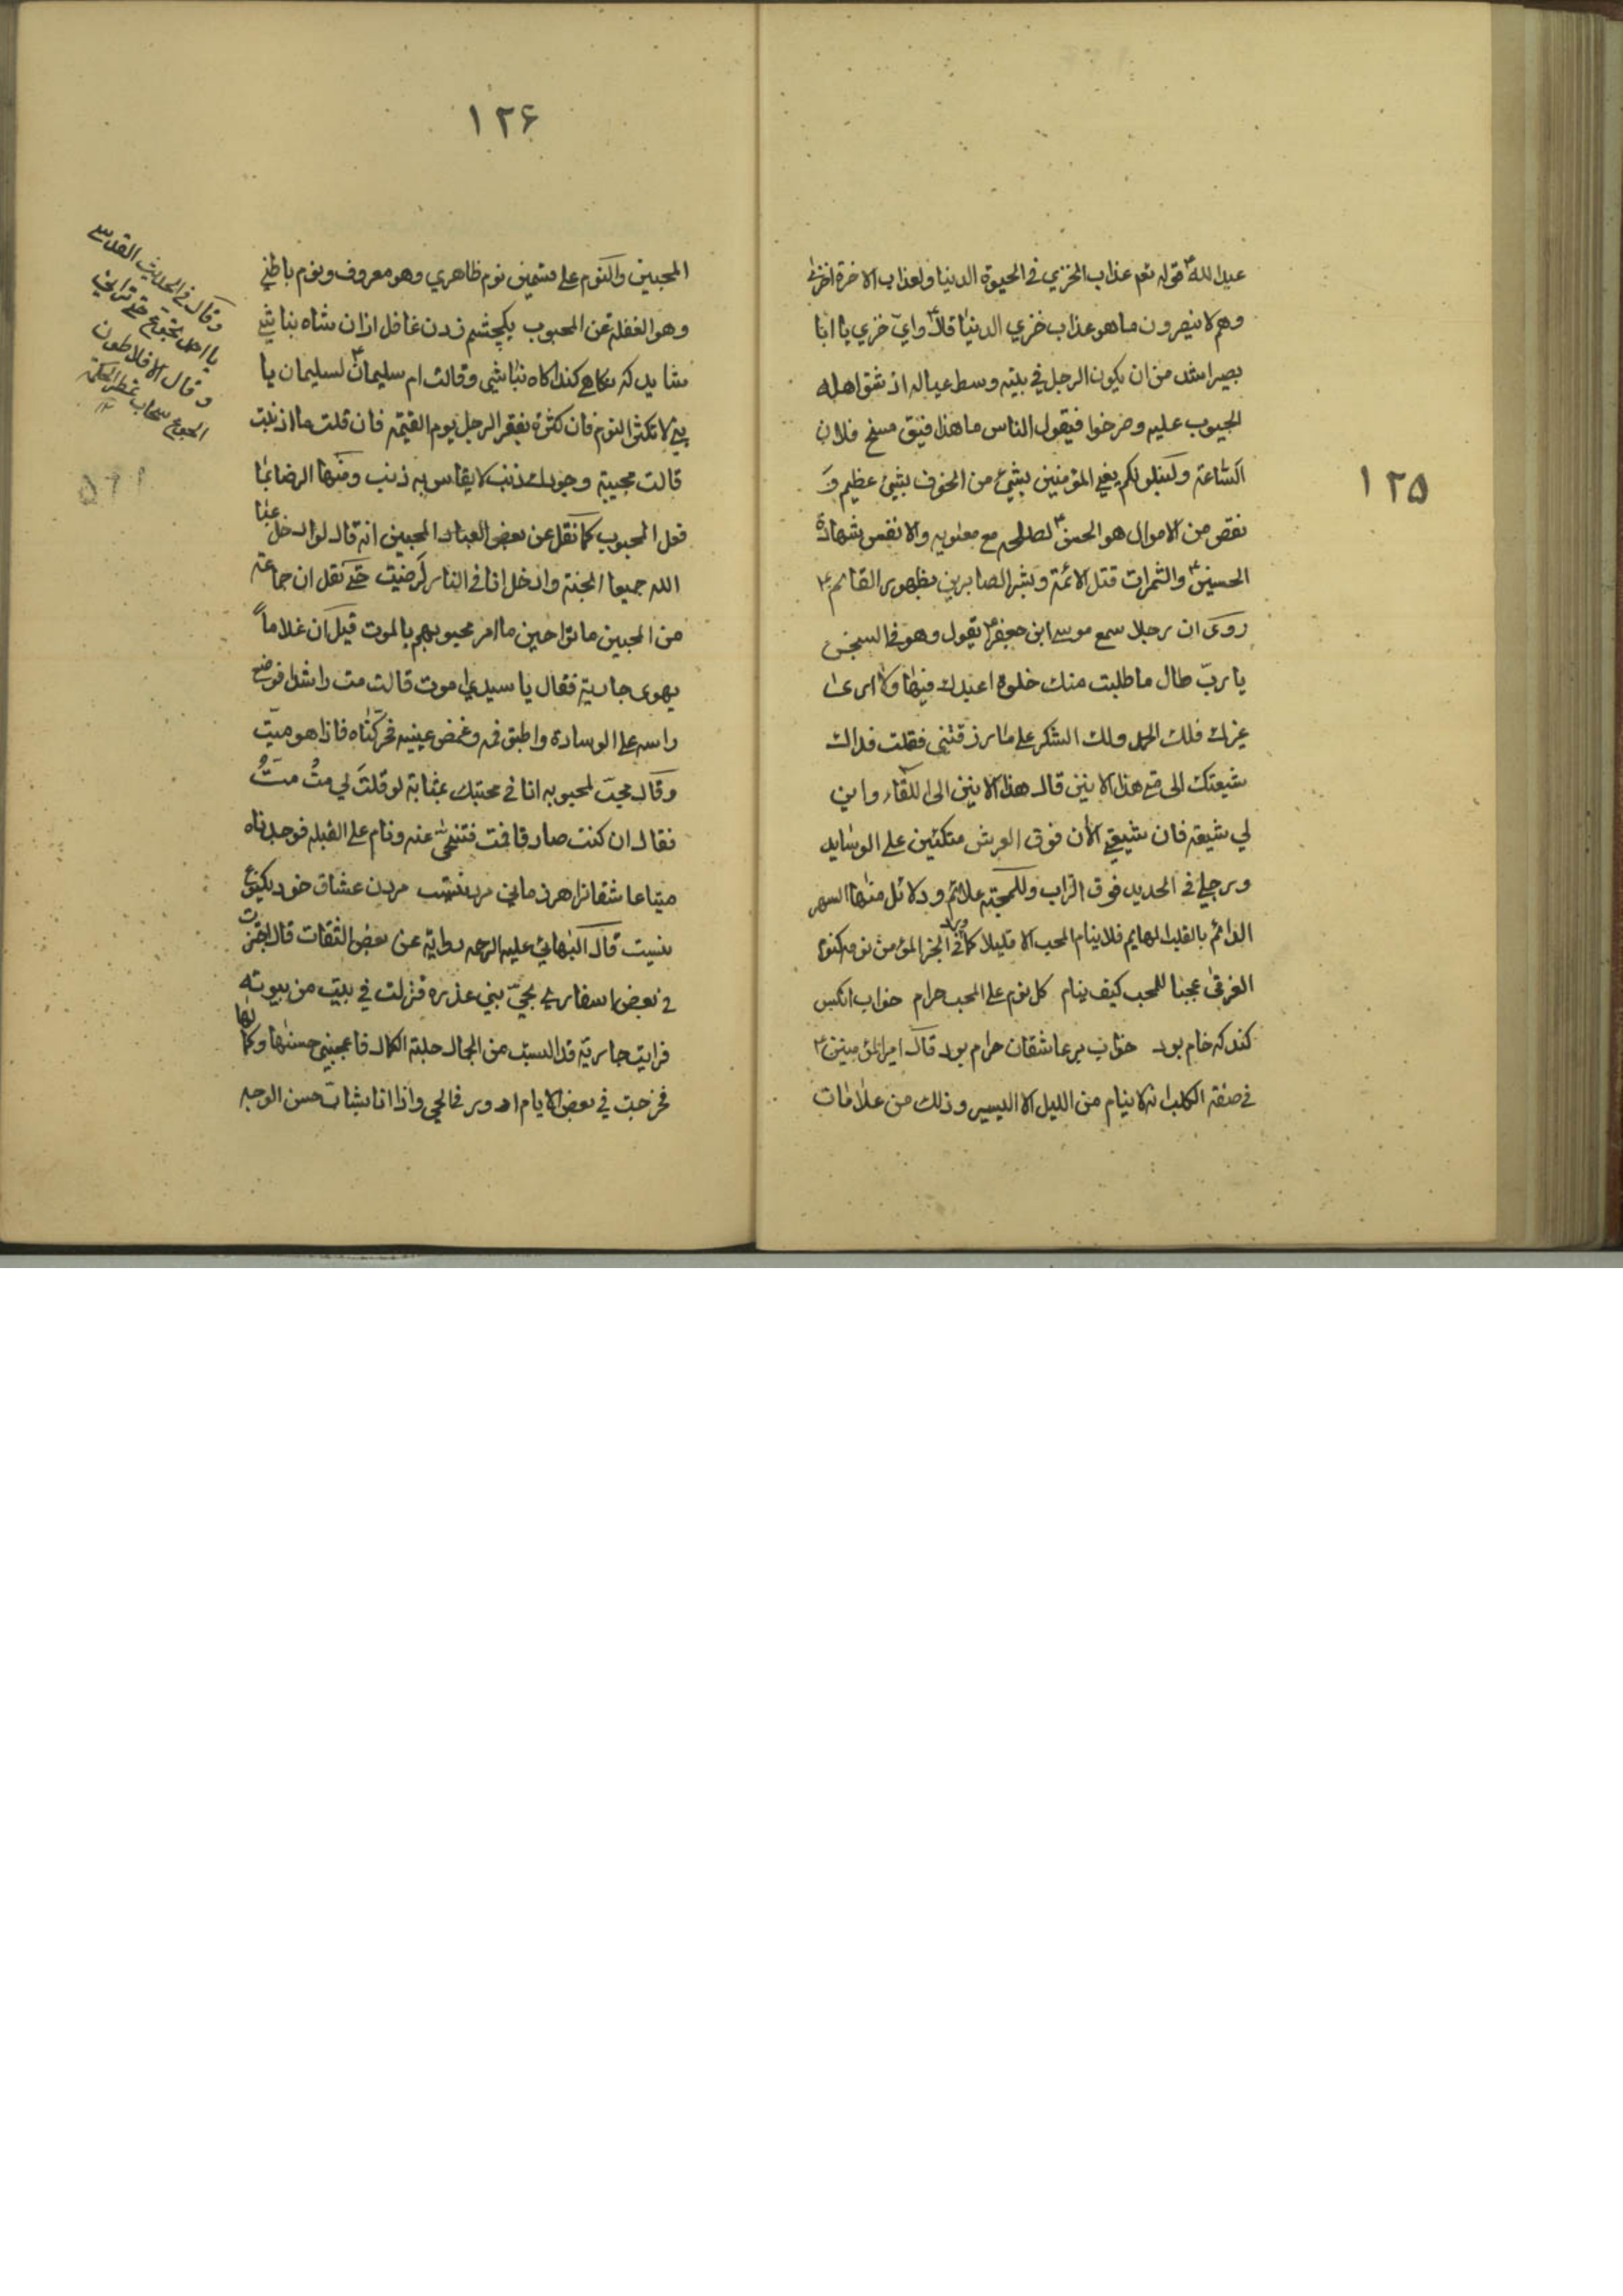 ١٢٥
عبد الله ع قوله تعم عذاب الخزي في الحيوة الدنيا ولعذاب الاخرة اخزى
وهم لا ينصرون ما هو عذاب خزي الدنيا قال ع واي خزي يا ابا
بصير اشد من ان يكون الرجل في بيته وسط عياله اذ شق اهله
الجيوب عليه وصرخوا فيقول الناس ما هذا فيق مسخ فلان
الساعة ولنبلونكم يعني المؤمنين بشيء من الخوف بشيء عظيم و
نقص من الاموال هو الحسن ع لصلحه مع معاويه والانفس بشهادة
الحسين ع والثمرات قتل الائمة وبشر الصابرين بظهور القائم ع
روى ان رجلا سمع موسى ابن جعفر ع يقول وهو في السجن
يا رب طال ما طلبت منك خلوة اعبدك فيها
فلك الحمد ولك الشكر على ما رزقتني فقلت فداك
شيعتك الى متى هذا الانين قال هذا الانين الى اللقاء واين
لي شيعة فان شيعتي الان فوق العرش متكئين على الوسايد
ورجلي في الحديد فوق التراب وللمحبة علائم ودلائل منها السهر
الدائم بالقلب الهايم فلا ينام المحب الا قليلا كما في الخبر المؤمن نومه كنوم
الغرقى عجبا للمحب كيف ينام كل نوم على المحب حرام خواب انكس
كند كه خام بود خواب بر عاشقان حرام بود قال امير المؤمنين ع
في صفة الكلب انه لا ينام من الليل الا اليسير وذلك من علامات
١٢۶
المحبين والنوم على قسمين نوم ظاهري وهو معروف ونوم باطني
وهو الغفلة عن المحبوب يكچشم زدن غافل ازان شاه نباشي
شايد كه نكاهي كند اكاه نباشي وقالت ام سليمان ع لسليمان يا
بني لا تكثر النوم فان كثرة يفقر الرجل يوم القيمة فان قلت ما اذنبت
قالت مجيبة وجودك ذنب لا يقاس به ذنب ومنها الرضا بما
فعل المحبوب كما نقل عن بعض العباد المحبين انه قال لو ادخل عبا
الله جميعا الجنة وادخل انا في النار لرضيت حتى نقل ان جماعة
من المحبين ماتوا حين ما امر محبوبهم بالموت قيل ان غلاماً
يهوى جارية فقال يا سيدي موت قالت مت راشدا فوضع
راسه على الوسادة واطبق فمه وغمض عينيه فحركناه فاذا هو ميّت
وقال محب لمحبوبه انا في محبتك بمثابة لو قلت لي متْ متُّ
فقال ان كنت صادقا فمت فتنحى عنه ونام على القبلة فوجدناه
ميتا عاشقانرا هر زماني مردنيست مردن عشاق خود يكنوع
نيست قال البهائي عليه الرحمه رواية عن بعض الثقات قال اجتزت
في بعض اسفاري بحيّ بني عذرة فنزلت في بيت من بيوته
فرايت جارية قد البست من الجمال حلية الكمال فاعجبني حسنها وكلامها
فخرجت في بعض الايام ادور في الحي واذا انا بشاب حسن الوجه
وقال في الحديث القدسي
يا احمد تجوع حتى تراني
وقال الافلاطون
الجوع سحاب غطر الحكمة